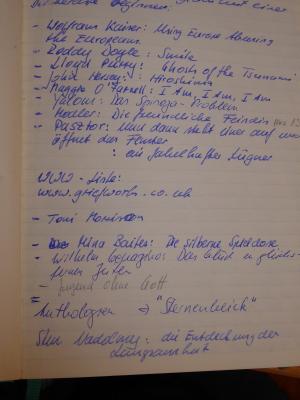 - Wolfram Kaiser: Using Europe Abusing
the Europeans
- Roddy Doyle: Smile
- Lloyd Parry: Ghosts of the Tsunami
- John Hersey: Hiroshima
- Maggie O'Farrell: I Am, I Am, I Am
- Yalom: Das Spinoza-Problem
- : Die freundliche Feindin
- Pasztor: Und dann steht einer auf und
öffnet das Fenster
: ein fabelhafter Lügner
www-Links:
www.griefworks.co.uk
- Toni Morrison
- Mina Baites: Die silberne Spieldose
- Wilhelm Genazino: Das Glück in glücks-
fernen Zeiten
- Jugend ohne Gott
Anthologien → "Sternenreich"
Sten Nadolny: die Entdeckung der
Langsamkeit